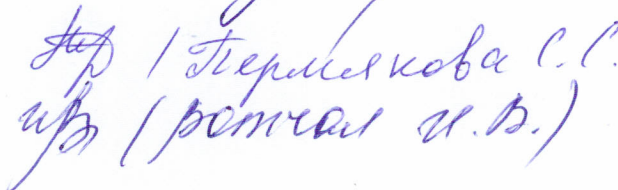 / Пермякова С.С.
( Ротчал И.В.)